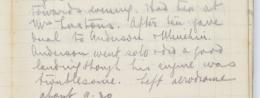 towards evening. Had tea at
Mrs Laxtons. After tea gave
dual to Anderson & Minchin.
Anderson went solo & did a good
landing though his engine was
troublesome. Left aerodrome
about 9.30